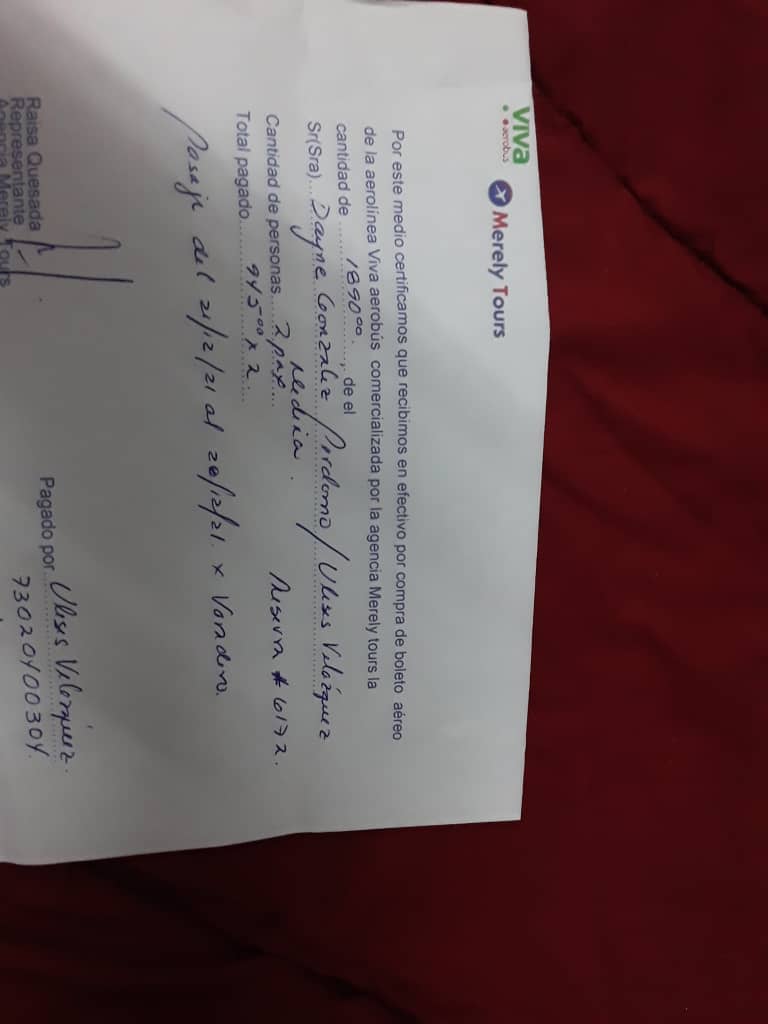 viva
aerobus
Merely Tours
Por este medio certificamos que recibimos en efectivo por compra de boleto aéreo
de la aerolínea Viva aerobús comercializada por la agencia Merely tours la
cantidad de ........1890 00........, de el
Sr(Sra)....Dayne Gonzalez Perdomo / Ulises Velázquez
Medina.
Cantidad de personas....2 pax.... Reserva # 6172.
Total pagado........945 00 x 2........
Pasaje del 21/12/21 al 28/12/21 x Varadero.
Pagado por Ulises Velázquez.
73020400304.
Raisa Quesada
Representante
Agencia Merely Tours